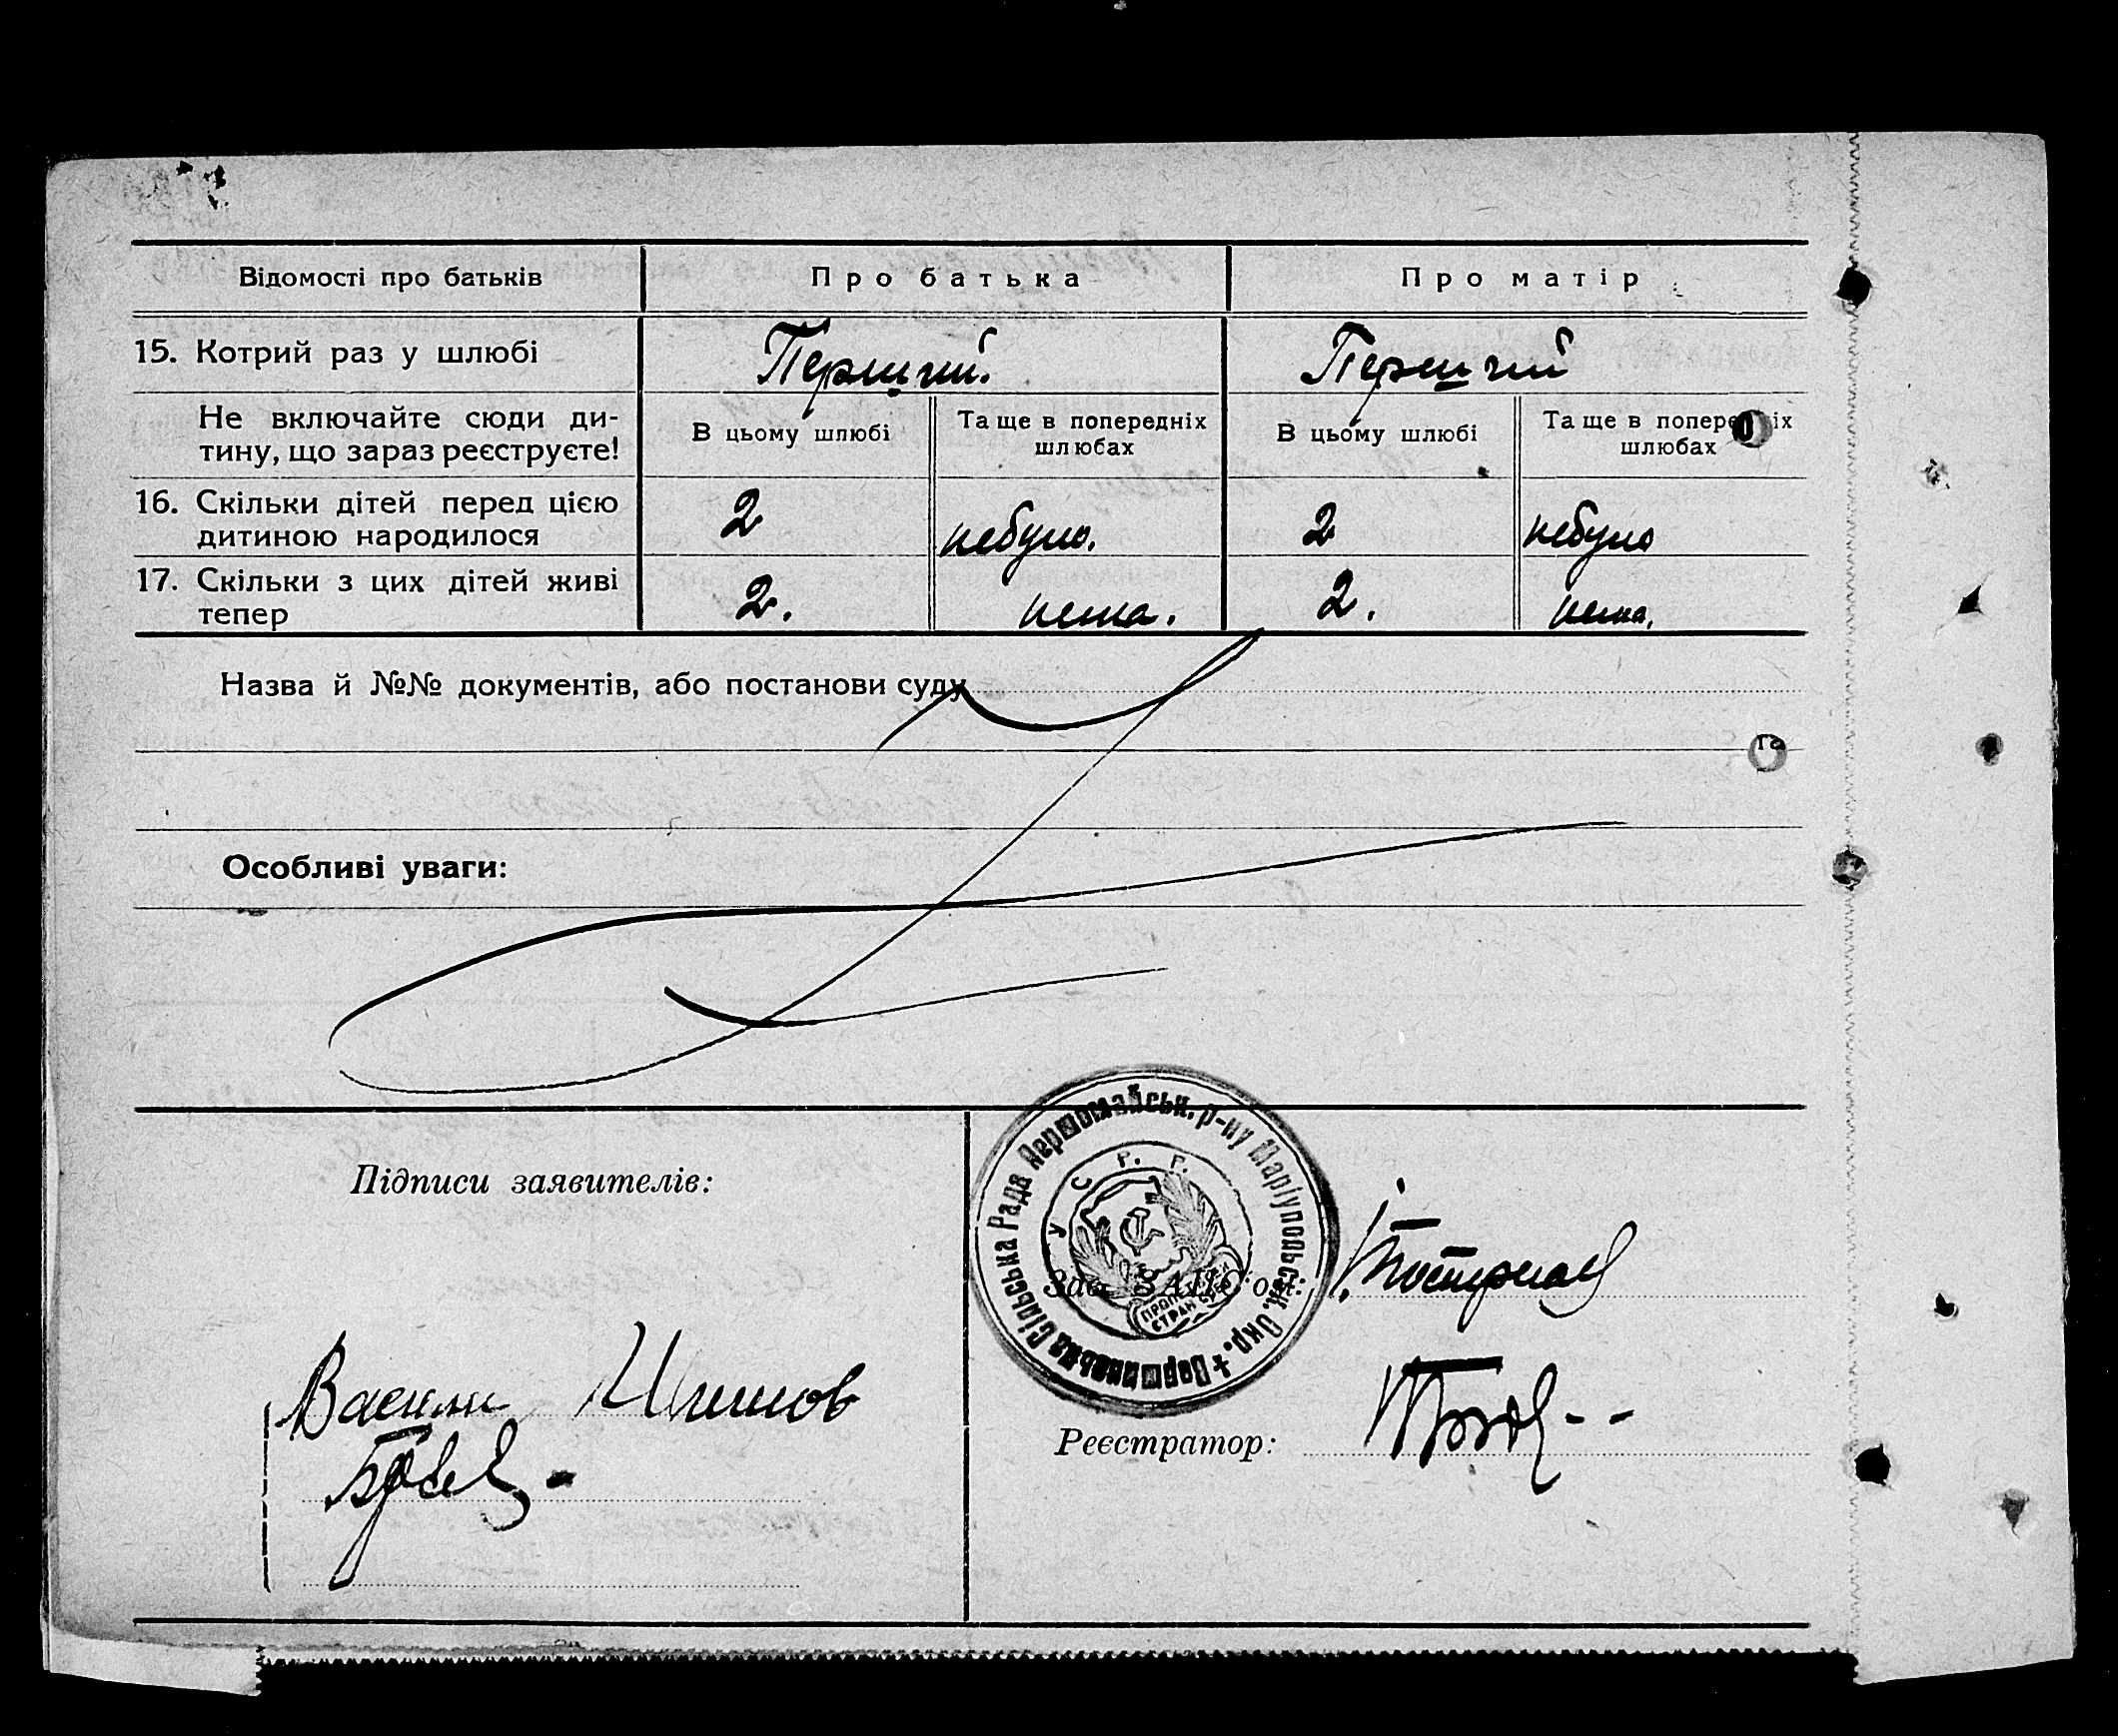 Відомості про батьків
Про батька
Про матір
15. Котрий раз у шлюбі
Перший.
Перший
Не включайте сюди ди-
тину, що зараз реєструєте!
В цьому шлюбі
Та ще в попередніх
шлюбах
В цьому шлюбі
Та ще в попере іх
шлюбах
16. Скільки дітей перед цією
дитиною народилося
2
небуло.
2
небуло
17. Скільки з цих дітей живі
тепер
2.
нема.
2.
нема.
Назва й №№ документів, або постанови суду
Особливі уваги:
Підписи заявителів:
Сільська Рада Першомайськ. р-ну Маріупольськ. Окр. +
У С Р Р.
Зав. ЗАГС'ом
Реєстратор: